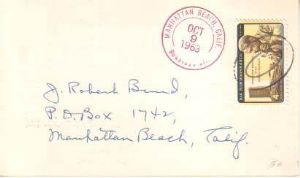 MANHATTAN BEACH, CALIF.
OCT
9
1963
J. Robert Burnd,
P.O. Box 1742,
Manhattan Beach, Calif.